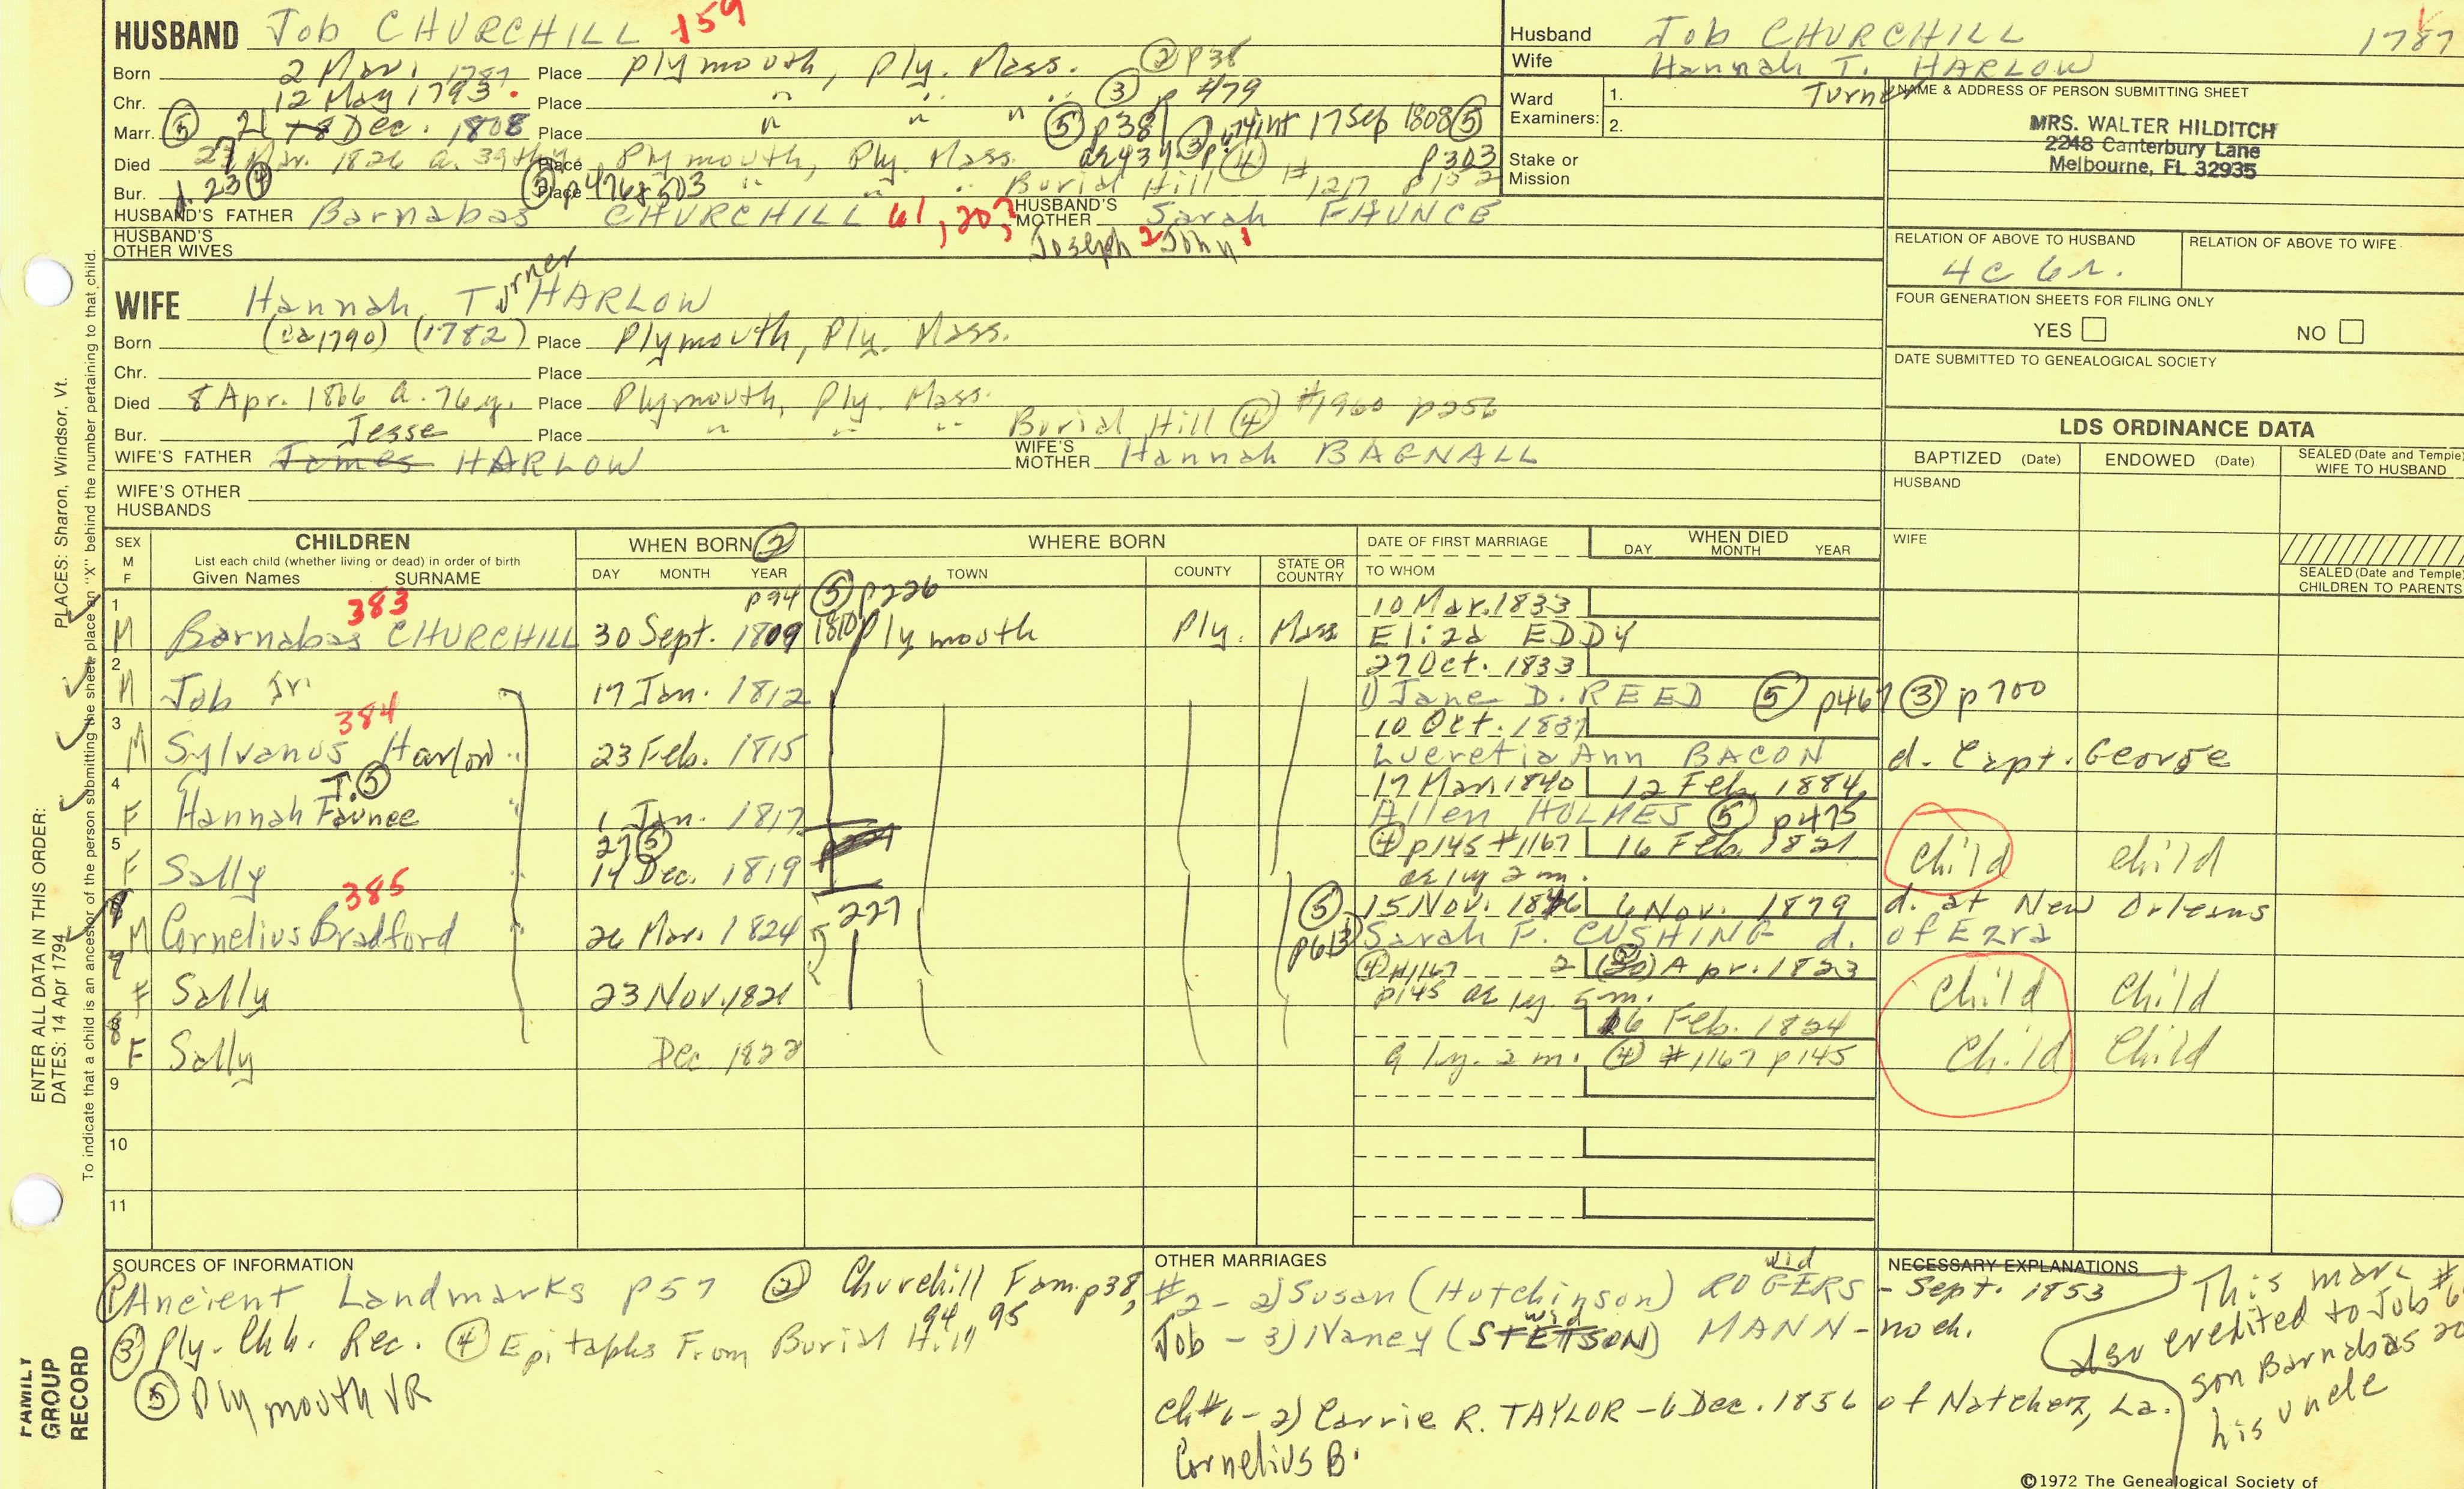 HUSBAND Job CHURCHILL 159
Born 2 Mar. 1787 Place Plymouth, Ply. Mass. ② p38
Chr. 12 May 1793 Place " " " ③ p 479
Marr. ⑤ 21 Dec. 1808 Place " " " ⑤ p38 int 17 Sep 1808 ⑤
Died 27 Mar. 1826 a. 39th y. Place Plymouth, Ply. Mass. p303
Bur. d. 23 ④ Place ⑤ p476 & 503 " " " Burial Hill ④ #1217 p152
HUSBAND'S FATHER Barnabas CHURCHILL 61, 203 HUSBAND'S MOTHER Sarah FAUNCE
HUSBAND'S OTHER WIVES Joseph 2 John 1
Husband Job CHURCHILL 1787
Wife Hannah T. HARLOW
Turner
Ward Examiners: 1.
2.
Stake or Mission
NAME & ADDRESS OF PERSON SUBMITTING SHEET
MRS. WALTER HILDITCH
2248 Canterbury Lane
Melbourne, FL 32935
RELATION OF ABOVE TO HUSBAND RELATION OF ABOVE TO WIFE
4c 6r.
FOUR GENERATION SHEETS FOR FILING ONLY
YES NO
DATE SUBMITTED TO GENEALOGICAL SOCIETY
WIFE Hannah Turner HARLOW
Born (ca 1790) (1782) Place Plymouth, Ply. Mass.
Chr. Place
Died 8 Apr. 1866 a. 76 y. Place Plymouth, Ply. Mass.
Bur. Place " " " Burial Hill ④ #1960 p256
Jesse
WIFE'S FATHER James HARLOW WIFE'S MOTHER Hannah BAGNALL
WIFE'S OTHER HUSBANDS
LDS ORDINANCE DATA
BAPTIZED (Date) ENDOWED (Date) SEALED (Date and Temple) WIFE TO HUSBAND
HUSBAND
WIFE
SEALED (Date and Temple) CHILDREN TO PARENTS
SEX M F CHILDREN
List each child (whether living or dead) in order of birth
Given Names SURNAME
WHEN BORN ②
DAY MONTH YEAR
WHERE BORN
TOWN COUNTY STATE OR COUNTRY
DATE OF FIRST MARRIAGE
TO WHOM
WHEN DIED
DAY MONTH YEAR
383 p94 ⑤ p226 10 Mar. 1833
1 M Barnabas CHURCHILL 30 Sept. 1809 1810 Plymouth Ply. Mass Eliza EDDY
27 Oct. 1833
2 M Job Jr. 17 Jan. 1812 1) Jane D. REED ⑤ p467 ③ p700
384 10 Oct. 1837
3 M Sylvanus Harlow 23 Feb. 1815 Lucretia Ann BACON d. Capt. George
T. ⑤ 17 Mar 1840 12 Feb. 1884
4 F Hannah Faunce 1 Jan. 1817 Allen HOLMES ⑤ p475
27 ⑤ ④ p145 #1167 16 Feb. 1821
5 F Sally 14 Dec. 1819 ae 1y 2 m. Child Child
385 227 ⑤ 15 Nov. 1846 6 Nov. 1879 d. at New Orleans
M Cornelius Bradford 26 Mar. 1824 p613 Sarah F. CUSHING d. of Ezra
④ #1167 Apr. 1823
7 F Sally 23 Nov. 1821 p145 ae 1y. 5 m. Child Child
16 Feb. 1824
8 F Sally Dec 1822 a 1y. 2 m. ④ #1167 p145 Child Child
9
10
11
SOURCES OF INFORMATION
① Ancient Landmarks p57 ② Churchill Fam. p38, 94 95
③ Ply. Chh. Rec. ④ Epitaphs From Burial Hill
⑤ Plymouth VR
OTHER MARRIAGES
wid
#2 - 2) Susan (Hutchinson) ROGERS - Sept. 1853
wid
Job - 3) Nancy (STETSON) MANN - no ch.
Ch#6 - 2) Carrie R. TAYLOR - 6 Dec. 1856 of Natchez, La.
Cornelius B.
NECESSARY EXPLANATIONS
This marr
also credited to Job
son Barnabas
his uncle
©1972 The Genealogical Society of
ENTER ALL DATA IN THIS ORDER:
DATES: 14 Apr 1794 PLACES: Sharon, Windsor, Vt.
To indicate that a child is an ancestor of the person submitting the sheet, place an "X" behind the number pertaining to that child.
FAMILY
GROUP
RECORD